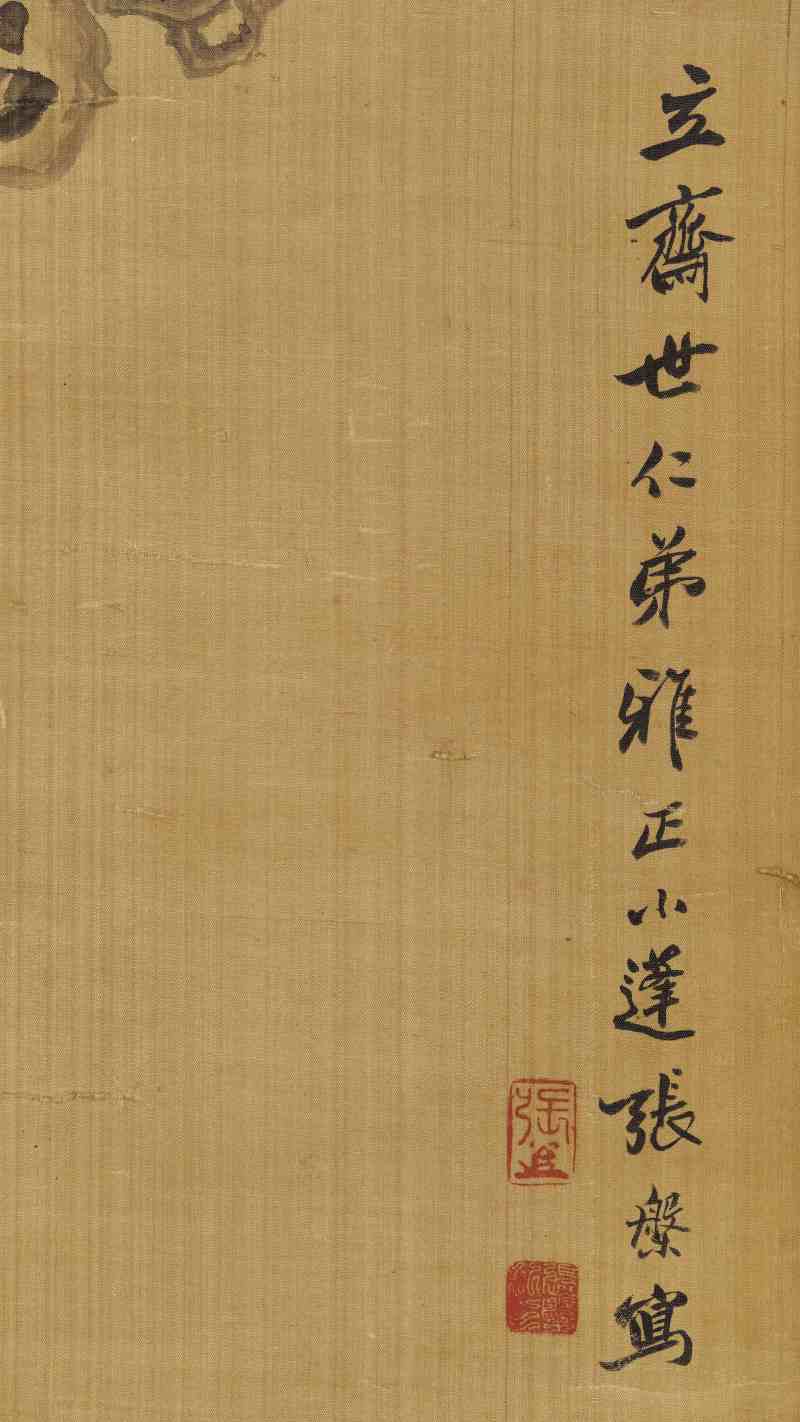 立齋世仁弟雅正小蓬張槃寫